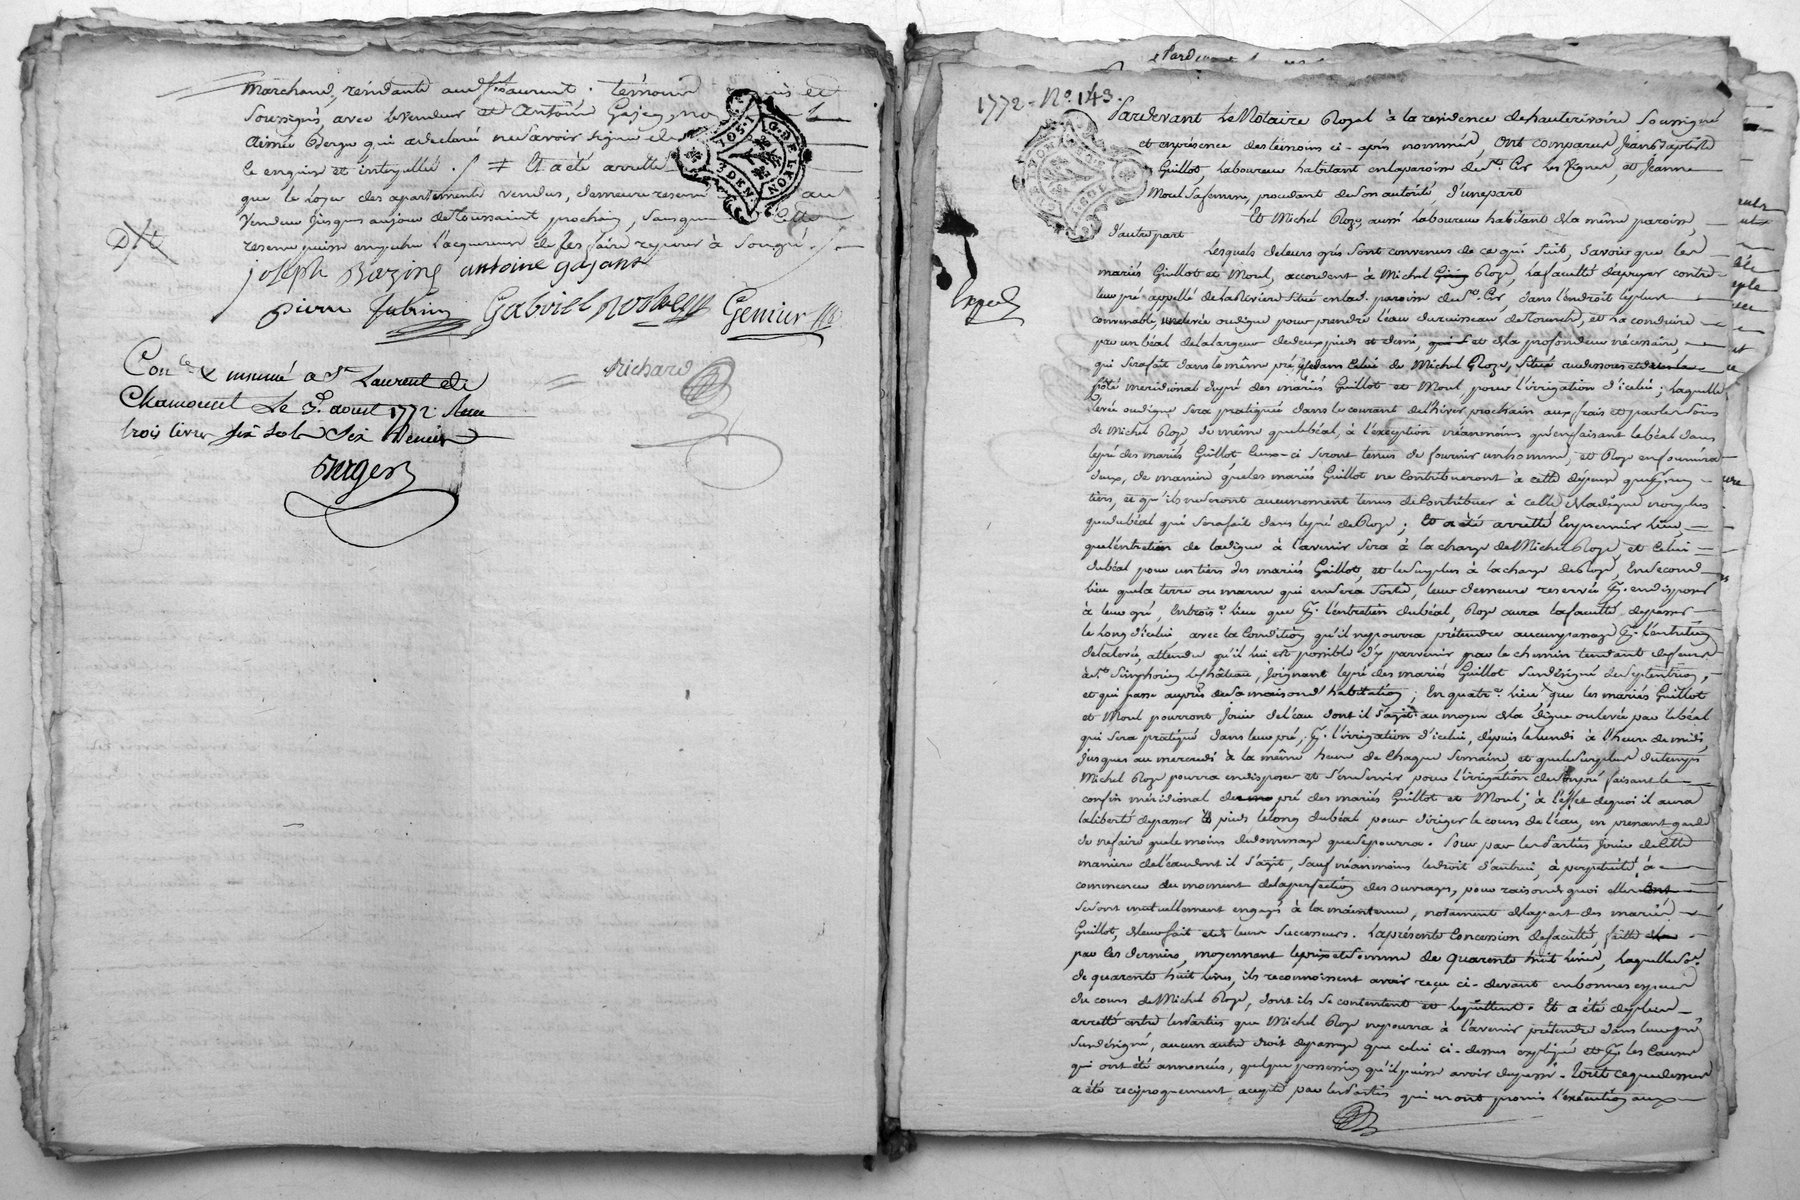 Marchand, résidants audit St Laurent. témoins
Soussignés avec le vendeur et Antoine Gajan, non
Aimée Berger qui a déclaré ne savoir signer de
ce enquise et interpellée. / ≠ Et a été arretté
que le Loyer des apartements vendus, demeure reservé au
vendeur jusques au jour de Toussaint prochain, sans que cette
reserve puisse empecher l'acquereur de les faire reparer à son gré. /.
joseph Bazin antoine gajant
pierre fabrin Gabriel Genier
Richard
Con.lé & insinué a St Laurent de
Chamousset Le 3e. aoust 1772 Reçu
trois livres six sols six deniers
Berger
1772 - No. 143.
G. DE LYON
2 DEN
Pardevant Le Notaire Royal à la résidence de hauterivoire Soussigné
et en présence des témoins ci-après nommés Ont comparus Jean Baptiste
Guillot, laboureur habitant en la paroisse de St. Cir les Vignes, et Jeanne
Moul sa femme, procedant de son autorité d'une part
Et Michel Roze, aussi laboureur habitant de la même paroisse,
d'autre part
Lesquels de leurs grés sont convenus de ce qui suit, Savoir que les
mariés Guillot et Moul, accordent à Michel Roze, la faculté d'apuyer contre
leur pré appellé de la Riviere Situé en lad. paroisse de St. Cir, dans l'endroit le plus
convenable, une levée ou digue pour prendre l'eau du ruisseau de Tourncé, et la conduire
par un béal de la largeur de deux pieds et demi, et de la profondeur nécessaire,
qui sera fait dans le même pré et dans celui de Michel Roze, Situé au dessous et
côté meridional du pré des mariés Guillot et Moul, pour l'irrigation d'icelui; laquelle
levée ou digue sera pratiquée dans le courant de l'hiver prochain aux frais et par les soins
de Michel Roze, de même que le béal, à l'exception néanmoins qu'en faisant le béal dans
le pré des mariés Guillot ceux-ci seront tenus de fournir un homme, et Roze en fournira
deux, de maniere que les mariés Guillot ne contribueront à cette dépense que pour un
tiers, et qu'ils ne seront aucunement tenus de contribuer à celle de la digue non plus
que du béal qui sera fait dans le pré de Roze; Et a été arretté en premier lieu,
que l'entretien de la digue à l'avenir sera à la charge de Michel Roze, et celui
du béal pour un tiers des mariés Guillot, et le surplus à la charge de Roze, En second
lieu que la terre ou marne qui en sera sortie, leur demeure reservée pr. en disposer
à leur gré, En trois.e lieu que pr. l'entretien du béal, Roze aura la faculté de passer
le long d'icelui, avec la condition qu'il ne pourra prétendre aucun passage pr. l'entretien
de la levée, attendu qu'il lui est possible d'y parvenir par le chemin tendant de feurs
à St. Simphorien le Château, joignant le pré des mariés Guillot Susdésigné de Septentrion,
et qui passe auprès de sa maison d'habitation; En quatr.e lieu, que les mariés Guillot
et Moul pourront jouir de l'eau dont il s'agit au moyen de la digue ou levée par le béal
qui sera pratiqué dans leur pré, pr. l'irrigation d'icelui, depuis le lundi à l'heure de midi,
jusques au mercredi à la même heure de chaque semaine, et que le surplus du temps
Michel Roze pourra en disposer et s'en servir pour l'irrigation de son pré faisant le
confin méridional pré des mariés Guillot et Moul; à l'effet de quoi il aura
la liberté de passer pieds le long du béal pour diriger le cours de l'eau, en prenant garde
de ne faire que le moins de dommage que se pourra. Pour par les Parties jouir de cette
maniere de l'eau dont il s'agit, sauf néanmoins le droit d'autrui, à perpetuité, à
commencer du moment de la perfection des ouvrages, pour raison de quoi elles
seront mutuellement engagées à la maintenue, notament de la part des mariés
Guillot, de leur fait et de leurs Successeurs. La présente Concession de faculté, faitte
par les derniers, moyennant le prix et somme de quarente huit livres, laquelle so.e
de quarente huit livres, ils reconnoissent avoir reçu ci-devant en bonnes especes
du cours de Michel Roze, dont ils se contentent et le quittent. Et a été de plus
arretté entre les Parties que Michel Roze ne pourra à l'avenir prétendre dans le pré
Susdésigné, aucun autre droit de passage que celui ci-dessus expliqué et pr. les causes
qui ont été annoncées, quelque possession qu'il puisse avoir de passé. Tout ce que dessus
a été reciproquement accepté par les Parties qui en ont promis l'exécution aux